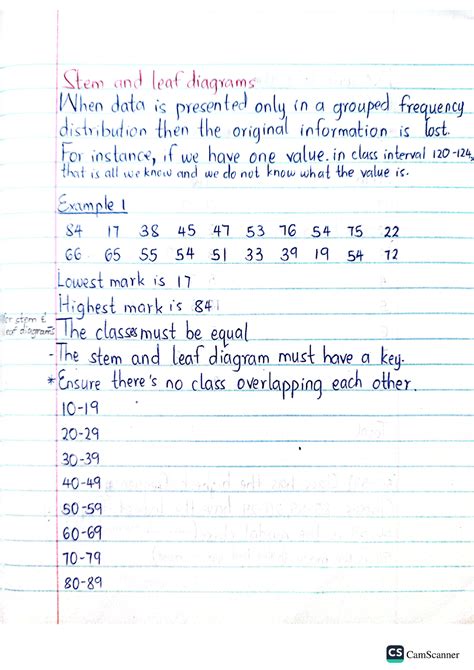 Stem and leaf diagrams
When data is presented only in a grouped frequency
distribution then the original information is lost.
For instance, if we have one value. in class interval 120-124,
that is all we know and we do not know what the value is.
Example 1
84 17 38 45 47 53 76 54 75 22
66 65 55 54 51 33 39 19 54 72
Lowest mark is 17
Highest mark is 84
for stem &
leaf diagrams
The classes must be equal
- The stem and leaf diagram must have a key.
* Ensure there's no class overlapping each other.
10-19
20-29
30-39
40-49
50-59
60-69
70-79
80-89
CS CamScanner